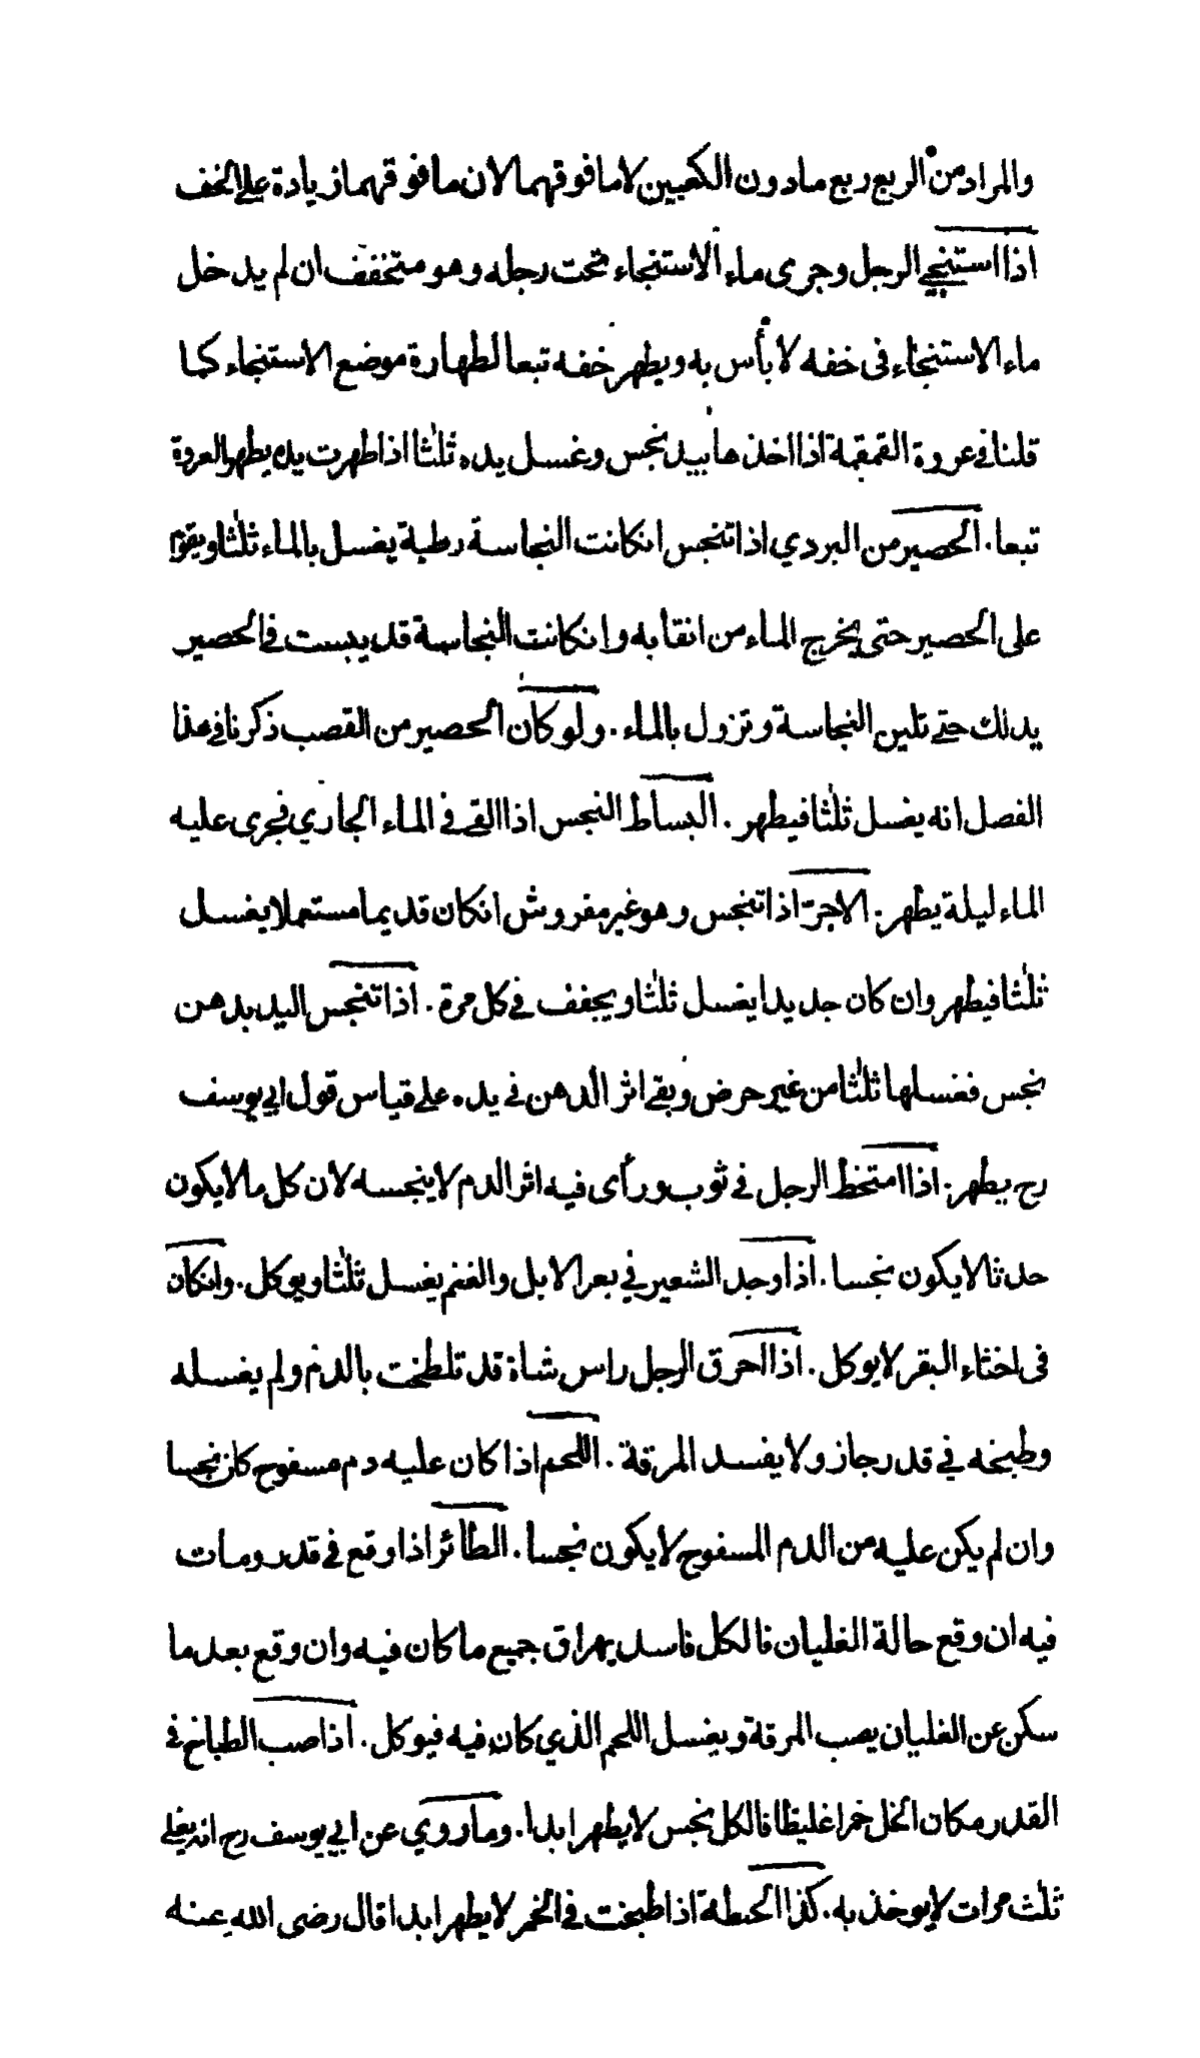 والمراد من الربع ربع مادون الكعبين لا مافوقهما لان مافوقهما زيادة على الخف
اذا استنجى الرجل وجرى ماء الاستنجاء تحت رجله وهو متخفف ان لم يدخل
ماء الاستنجاء فى خفه لا بأس به ويطهر خفه تبعا لطهارة موضع الاستنجاء كما
قلنا فى عروة القمقمة اذا اخذها بيد نجس وغسل يده ثلثا اذا طهرت يده يطهر العروة
تبعا. الحصير من البردي اذا تنجس انكانت النجاسة رطبة يغسل بالماء ثلثا ويقوم
على الحصير حتى يخرج الماء من انقابه وانكانت النجاسة قد يبست فى الحصير
يدلك حتى تلين النجاسة وتزول بالماء. ولو كان الحصير من القصب ذكرنا فى هذا
الفصل انه يغسل ثلثا فيطهر. البساط النجس اذا القى فى الماء الجاري فجرى عليه
الماء ليلة يطهر. الاجرّ اذا تنجس وهو غير مفروش انكان قديما مستعملا يغسل
ثلثا فيطهر وان كان جديدا يغسل ثلثا ويجفف فى كل مرة. اذا تنجس اليد بدهن
نجس فغسلها ثلثا من غير حرض وبقى اثر الدهن فى يده على قياس قول ابى يوسف
رح يطهر. اذا امتخط الرجل فى ثوب ورأى فيه اثر الدم لا ينجسه لان كل مالا يكون
حدثا لا يكون نجسا. اذا وجد الشعير فى بعر الابل والغنم يغسل ثلثا ويوكل. وانكان
فى اخثاء البقر لا يوكل. اذا احرق الرجل راس شاة قد تلطخت بالدم ولم يغسله
وطبخه فى قدر جاز ولا يفسد المرقة. اللحم اذا كان عليه دم مسفوح كان نجسا
وان لم يكن عليه من الدم المسفوح لا يكون نجسا. الطائر اذا وقع فى قدر ومات
فيه ان وقع حالة الغليان فالكل فاسد يهراق جميع ماكان فيه وان وقع بعد ما
سكن عن الغليان يصب المرقة ويغسل اللحم الذي كان فيه فيوكل. اذا صب الطباخ فى
القدر مكان الخل خمرا غليظا فالكل نجس لا يطهر ابدا. وما روي عن ابى يوسف رح انه يغلى
ثلث مرات لا يوخذ به. كذا الحنطة اذا طبخت فى الخمر لا يطهر ابدا قال رضى الله عنه